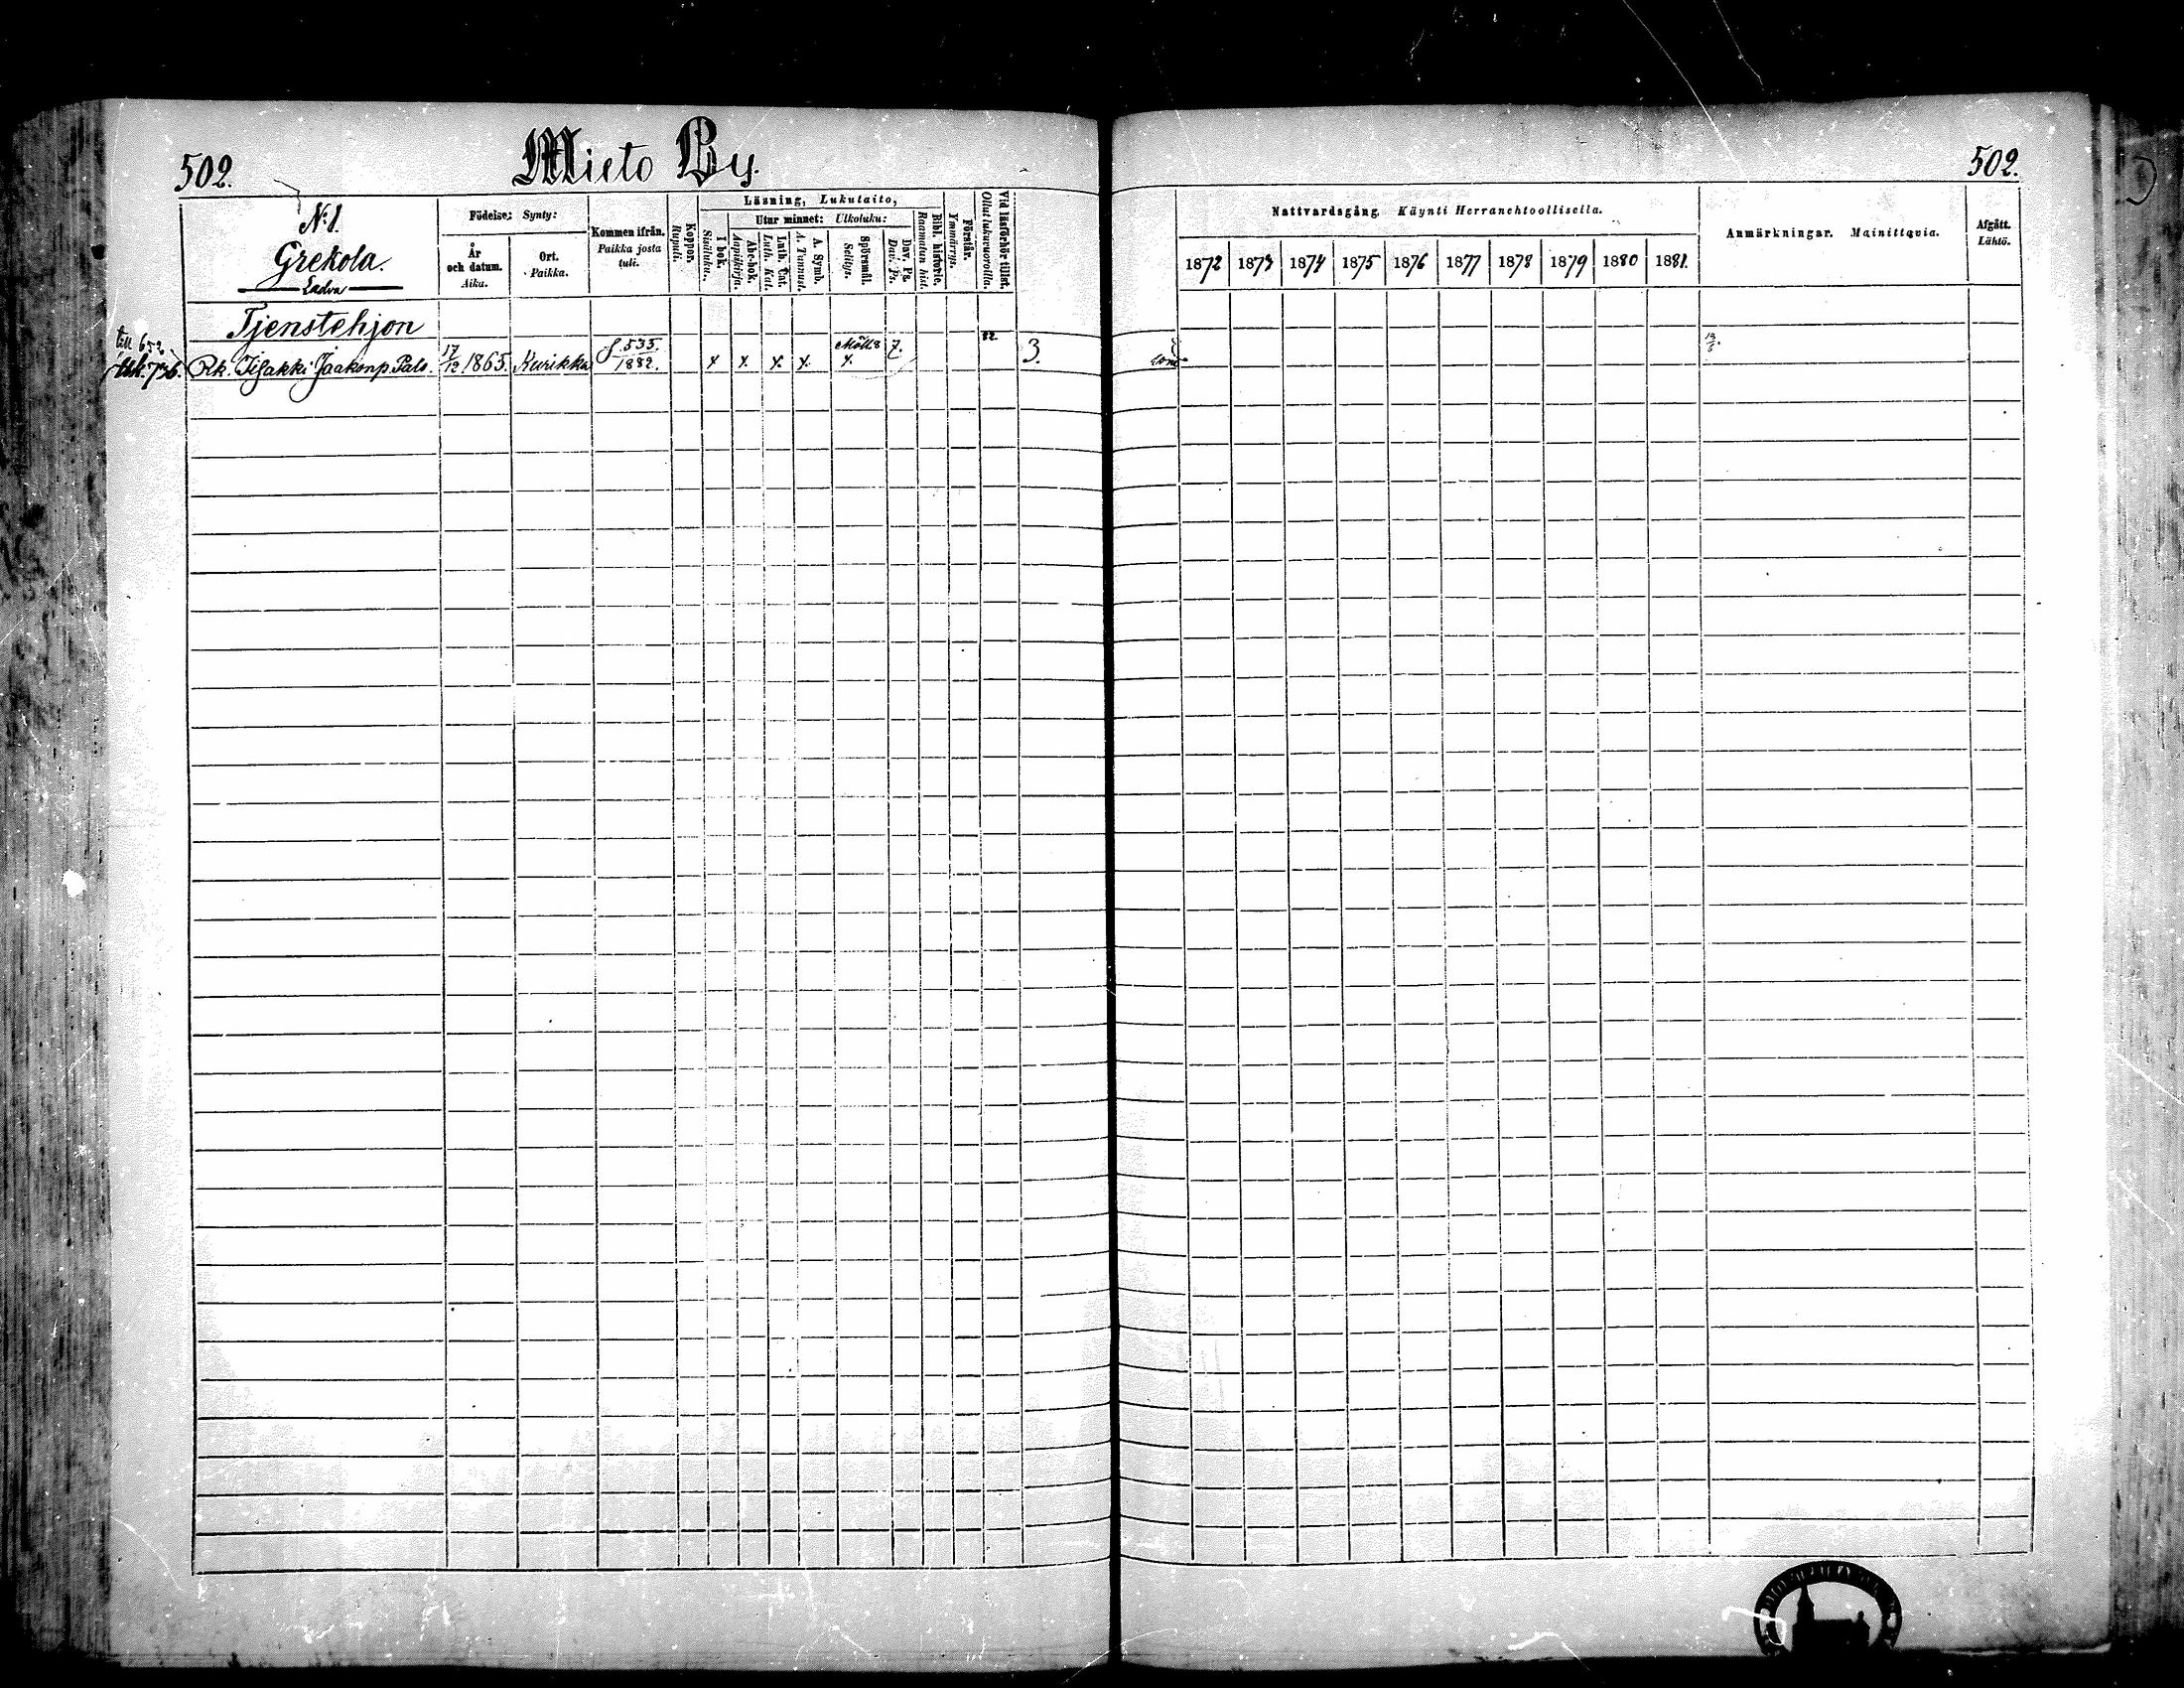 502.
Mieto By.
502.
N:1.
Grekola.
Ladva
Födelse: Synty:
År och datum. Aika.
Ort. Paikka.
Kommen ifrån. Paikka josta tuli.
Koppor. Rupuli.
Läsning, Lukutaito,
I bok. Sisäluku.
Utur minnet: Ulkoluku:
Abc-bok. Aapiskirja.
Luth. Cat. Luth. Kat.
A. Symb. A. Tunnust.
Spörsmål. Selitys.
Dav. Ps. Davi. Ps.
Bibl. historie. Raamatun hist.
Förstår. Ymmärrys.
Vid läsförhör tillst. Ollut lukuvuorolla.
Nattvardsgång. Käynti Herranehtoollisella.
1872 1873 1874 1875 1876 1877 1878 1879 1880 1881.
Anmärkningar. Mainittavia.
Afgått. Lähtö.
Tjenstehjon
till 652.
Rk. Iisakki Jaakonp. Palo. 17/12 1865. Kurikka f. 535. 1882. x x. x. x. x. 7. 82. 3.